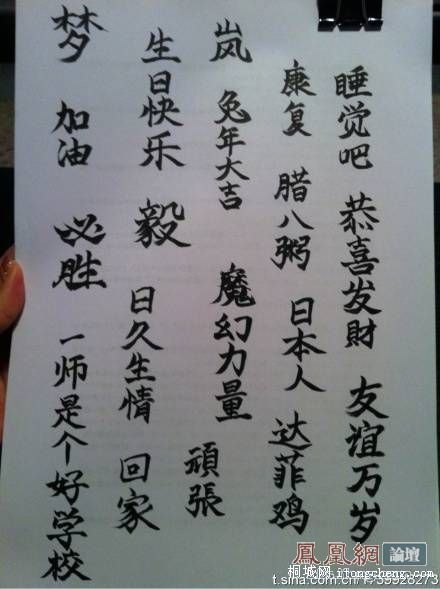 睡觉吧 恭喜发財 友谊万岁
康复 腊八粥 日本人 达菲鸡
岚 兔年大吉 魔幻力量 頑張
生日快乐 毅 日久生情 回家
梦 加油 必胜 一师是个好学校
鳳凰網 論壇
桐城网 itongcheng.com
t.sina.com.cn/1739928273